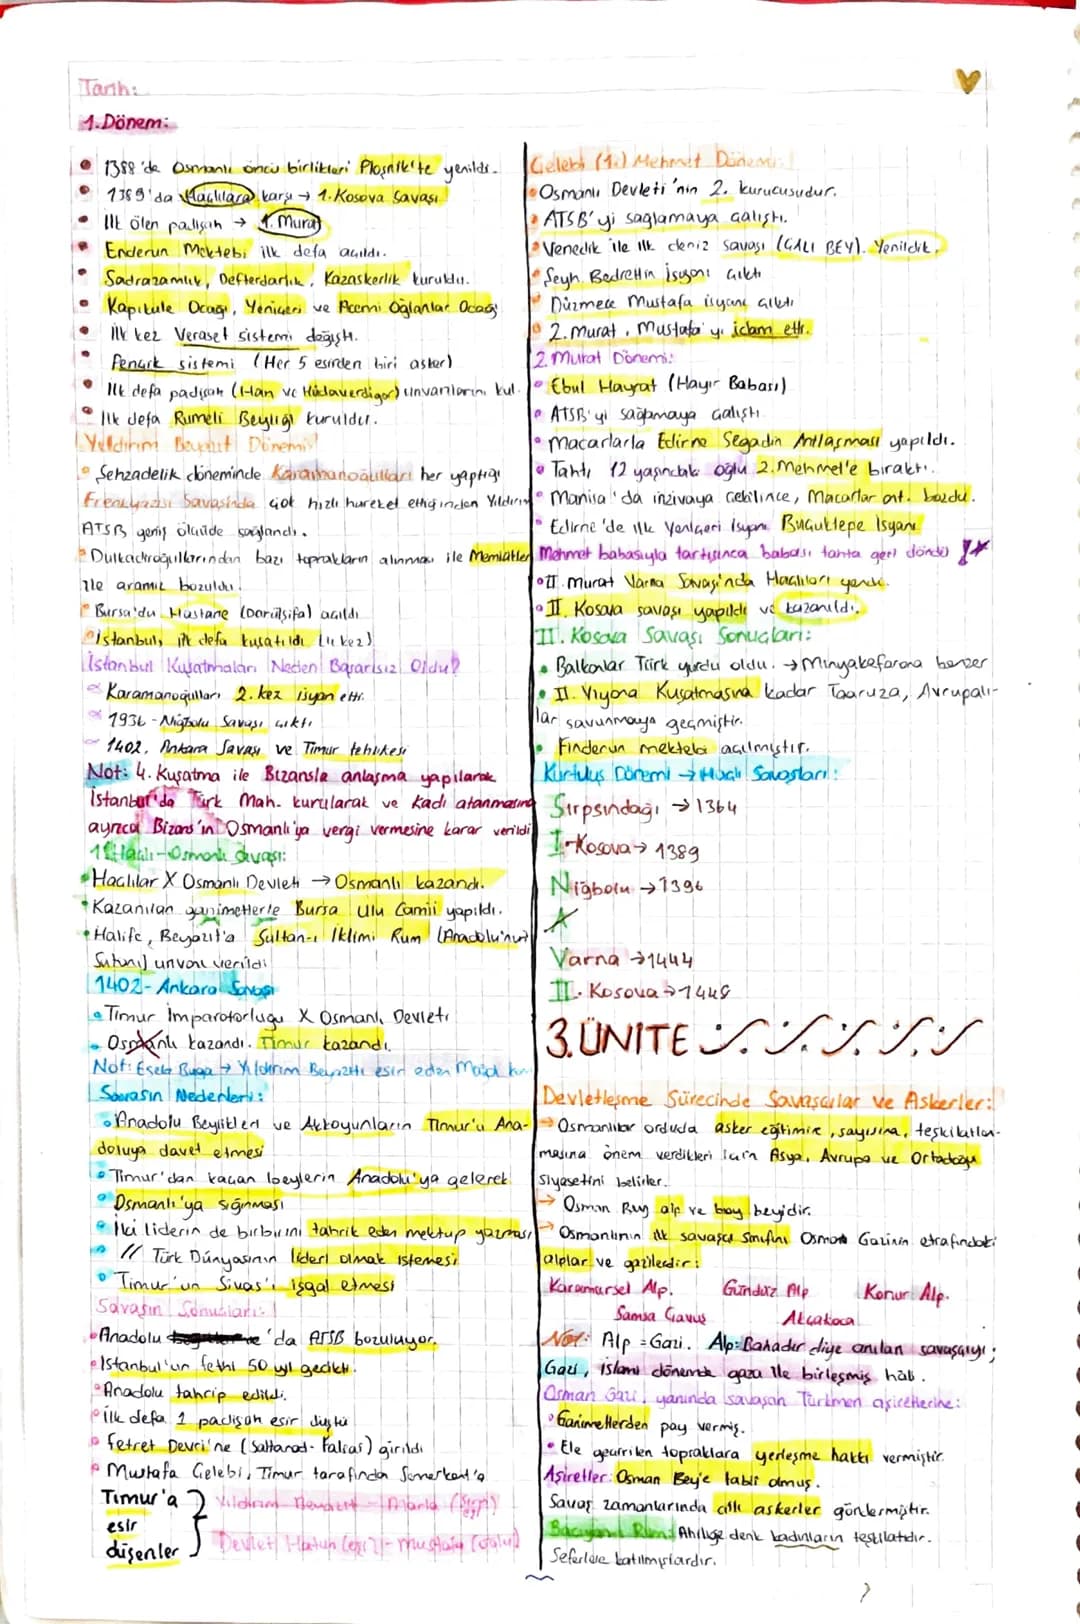 Tarih:
1.Dönem:
1388'de Osmanlı öncü birlikleri Ploşnik'te yenildi.
1389'da Haçlılara karşı → 1.Kosova Savaşı
İlk ölen padişah → 1. Murat
Enderun Mektebi ilk defa açıldı.
Sadrazamlık, Defterdarlık, Kazaskerlik kuruldu.
Kapıkule Ocağı, Yeniçeri ve Acemi Oğlanlar Ocağı
İlk kez Veraset sistemi değişti.
Pençik sistemi (Her 5 esirden biri asker)
İlk defa padişah (Han ve Hüdaverdigar) unvanlarını kul.
İlk defa Rumeli Beyliği kuruldu.
Yıldırım Beyazıt Dönemi:
Şehzadelik döneminde Karamanoğulları her yaptığı
Frenkyazısı Savaşında çok hızlı hareket ettiğinden Yıldırım
ATSB geniş ölçüde sağlandı.
Dulkadiroğullarından bazı toprakların alınması ile Memlükler
ile aramız bozuldu.
Bursa'da Hastane (Darülşifa) açıldı
İstanbul, ilk defa kuşatıldı (4 kez)
İstanbul Kuşatmaları Neden Başarısız Oldu?
Karamanoğulları 2. kez isyan etti.
1936 - Niğbolu Savaşı çıktı
1402, Ankara Savaşı ve Timur tehlikesi
Not: 4. Kuşatma ile Bizansla anlaşma yapılarak
İstanbul'da Türk Mah. kurularak ve Kadı atanmasına
ayrıca Bizans'ın Osmanlı'ya vergi vermesine karar verildi
1. Haçlı-Osmanlı Savaşı:
Haçlılar X Osmanlı Devleti → Osmanlı kazandı.
Kazanılan ganimetlerle Bursa Ulu Camii yapıldı.
Halife, Beyazıt'a Sultan-ı İklimi Rum (Anadolu'nun
Sultanı) unvanı verildi
1402- Ankara Savaşı
Timur İmparatorluğu X Osmanlı Devleti
Osmanlı kazandı. Timur kazandı.
Not: Esela Buga → Yıldırım Beyazıtı esir eden
Savaşın Nedenleri:
Anadolu Beylikleri ve Akkoyunların Timur'u Ana-
doluya davet etmesi
Timur'dan kaçan beylerin Anadolu'ya gelerek
Osmanlı'ya sığınması
İki liderin de birbirini tahrik eden mektup yazması
// Türk Dünyasının lideri olmak istemesi
Timur'un Sivas'ı işgal etmesi
Savaşın Sonuçları:
Anadolu 'da ATSB bozuluyor.
İstanbul'un fethi 50 yıl gecikti.
Anadolu tahrip edildi.
İlk defa 1 padişah esir düştü
Fetret Devri'ne (Saltanat- Falsas) girildi
Mustafa Çelebi, Timur tarafından Semerkant'a
Timur'a
esir
düşenler
Yıldırım Beyazıt - Maria (Eşi)
Devlet Hatun (eşi?) - Mustafa (oğlu)
Çelebi (1.) Mehmet Dönemi:
Osmanlı Devleti'nin 2. kurucusudur.
ATSB'yi sağlamaya çalıştı.
Venedik ile ilk deniz savaşı (ÇALI BEY). Yenildik.
Şeyh Bedrettin İsyanı çıktı
Düzmece Mustafa isyanı çıktı
2. Murat, Mustafa'yı idam etti.
2.Murat Dönemi:
Ebul Hayrat (Hayır Babası)
ATSB'yi sağlamaya çalıştı
Macarlarla Edirne Segadin Antlaşması yapıldı.
Tahtı 12 yaşındaki oğlu 2.Mehmet'e bıraktı.
Manisa'da inzivaya çekilince, Macarlar ant. bozdu.
Edirne'de ilk Yeniçeri İsyanı Buçuktepe İsyanı
Mehmet babasıyla tartışınca babası tahta geri döndü
II. Murat Varna Savaşı'nda Haçlıları yendi.
II. Kosova savaşı yapıldı ve kazanıldı.
II. Kosova Savaşı Sonuçları:
Balkanlar Türk yurdu oldu. → Minyakefarona benzer
II. Viyana Kuşatmasına kadar Taaruza, Avrupalı-
lar savunmaya geçmiştir.
Enderun mektebi açılmıştır.
Kurtuluş Dönemi → Haçlı Savaşları:
Sırpsındağı → 1364
I-Kosova → 1389
Niğbolu → 1396
A
Varna → 1444
II. Kosova → 1448
3.ÜNİTE
Devletleşme Sürecinde Savaşçılar ve Askerler:
Osmanlılar orduda asker eğitimine, sayısına, teşkilatlan-
masına önem verdikleri için Asya, Avrupa ve Ortadoğu
siyasetini belirler.
Osman Bey alp ve boy beyidir.
Osmanlının ilk savaşçı sınıfını Osman Gazinin etrafındaki
alplar ve gazilerdir:
Karamürsel Alp. Gündüz Alp Konur Alp.
Samsa Çavuş Akçakoca
Not: Alp = Gazi. Alp: Bahadır diye anılan savaşçıyı;
Gazi, islami dönemde gaza ile birleşmiş hali.
Osman Gazi, yanında savaşan Türkmen aşiretlerine:
Ganimetlerden pay vermiş.
Ele geçirilen topraklara yerleşme hakkı vermiştir.
Aşiretler: Osman Bey'e tabii olmuş.
Savaş zamanlarında atlı askerler göndermiştir.
Bacıyan-ı Rum: Ahiliğe denk kadınların teşkilatıdır.
Seferlere katılmışlardır.